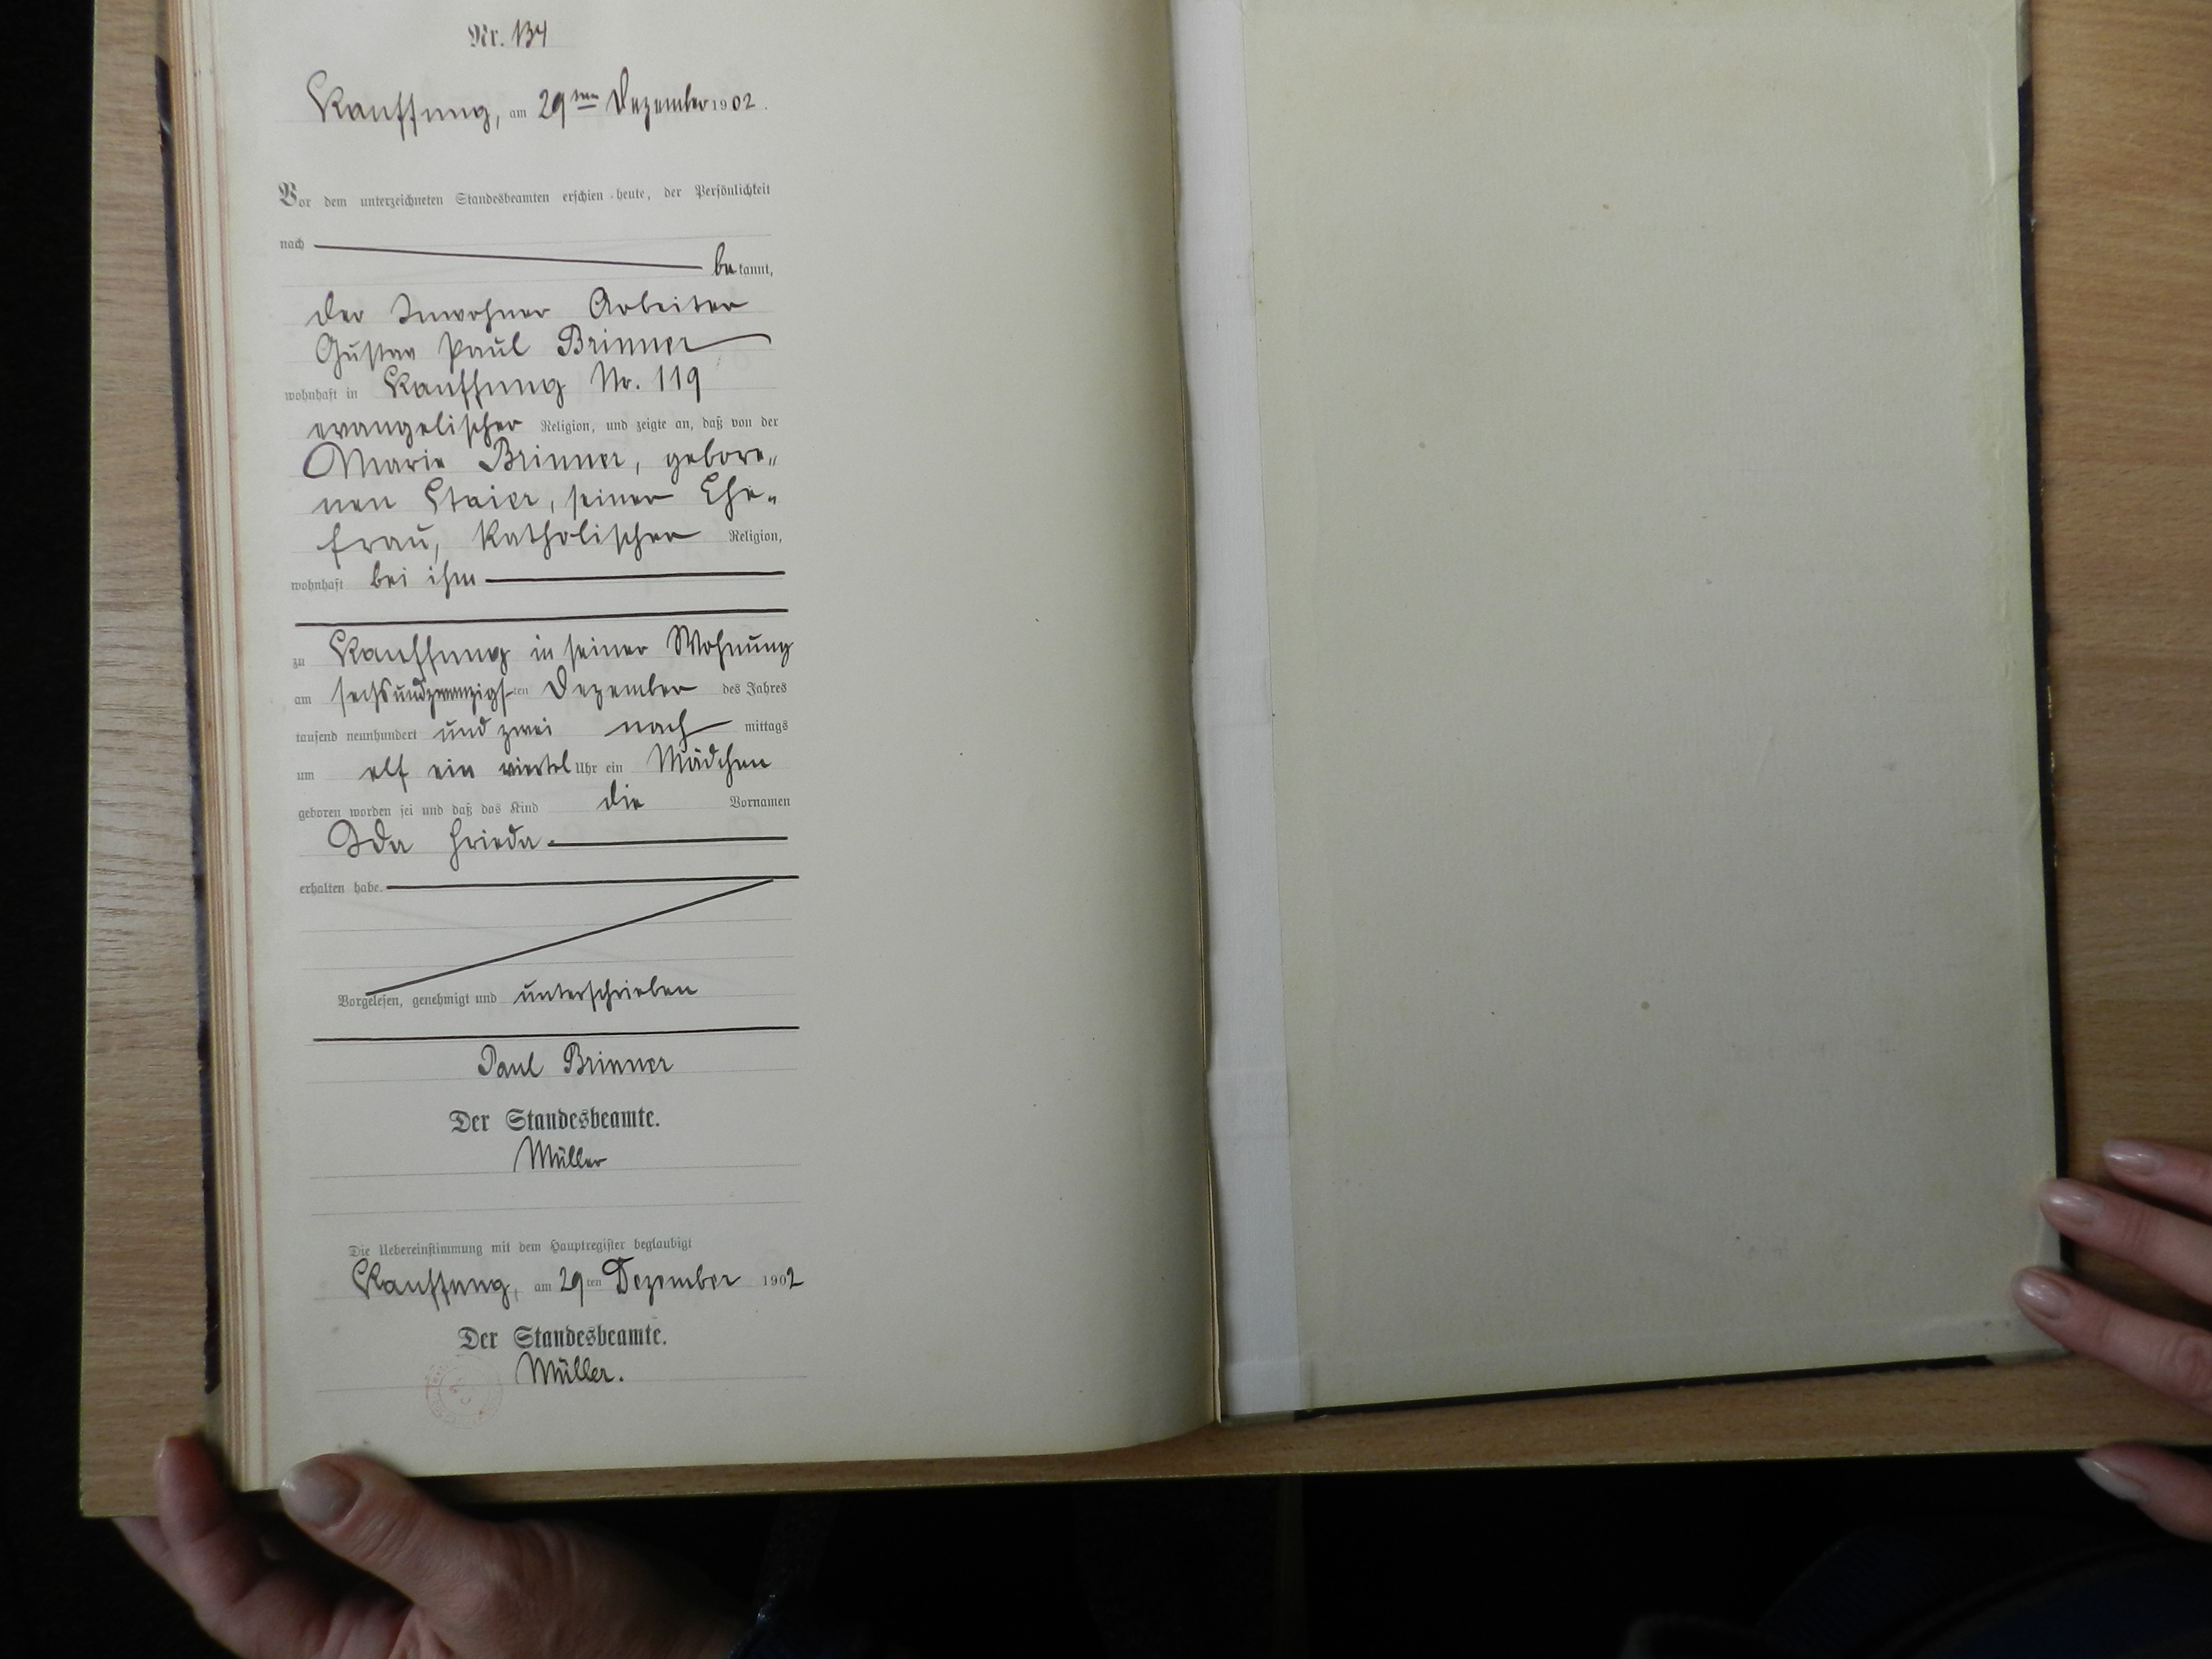 Nr. 134
Kauffung, am 29ten Dezember 1902.
Vor dem unterzeichneten Standesbeamten erschien heute, der Persönlichkeit
nach
bekannt,
der Inwohner Arbeiter
Gustav Paul Brinner
wohnhaft in Kauffung Nr. 119
evangelischer Religion, und zeigte an, daß von der
Marie Brinner, gebore„
nen Staier, seiner Ehe„
frau, katholischer Religion,
wohnhaft bei ihm
zu Kauffung in seiner Wohnung
am sechsundzwanzigsten Dezember des Jahres
tausend neunhundert und zwei nachmittags
um elf ein viertel Uhr ein Mädchen
geboren worden sei und daß das Kind die Vornamen
Ida Frieda
erhalten habe.
Vorgelesen, genehmigt und unterschrieben
Paul Brinner
Der Standesbeamte.
Müller
Die Uebereinstimmung mit dem Hauptregister beglaubigt
Kauffung, am 29ten Dezember 1902
Der Standesbeamte.
Müller.